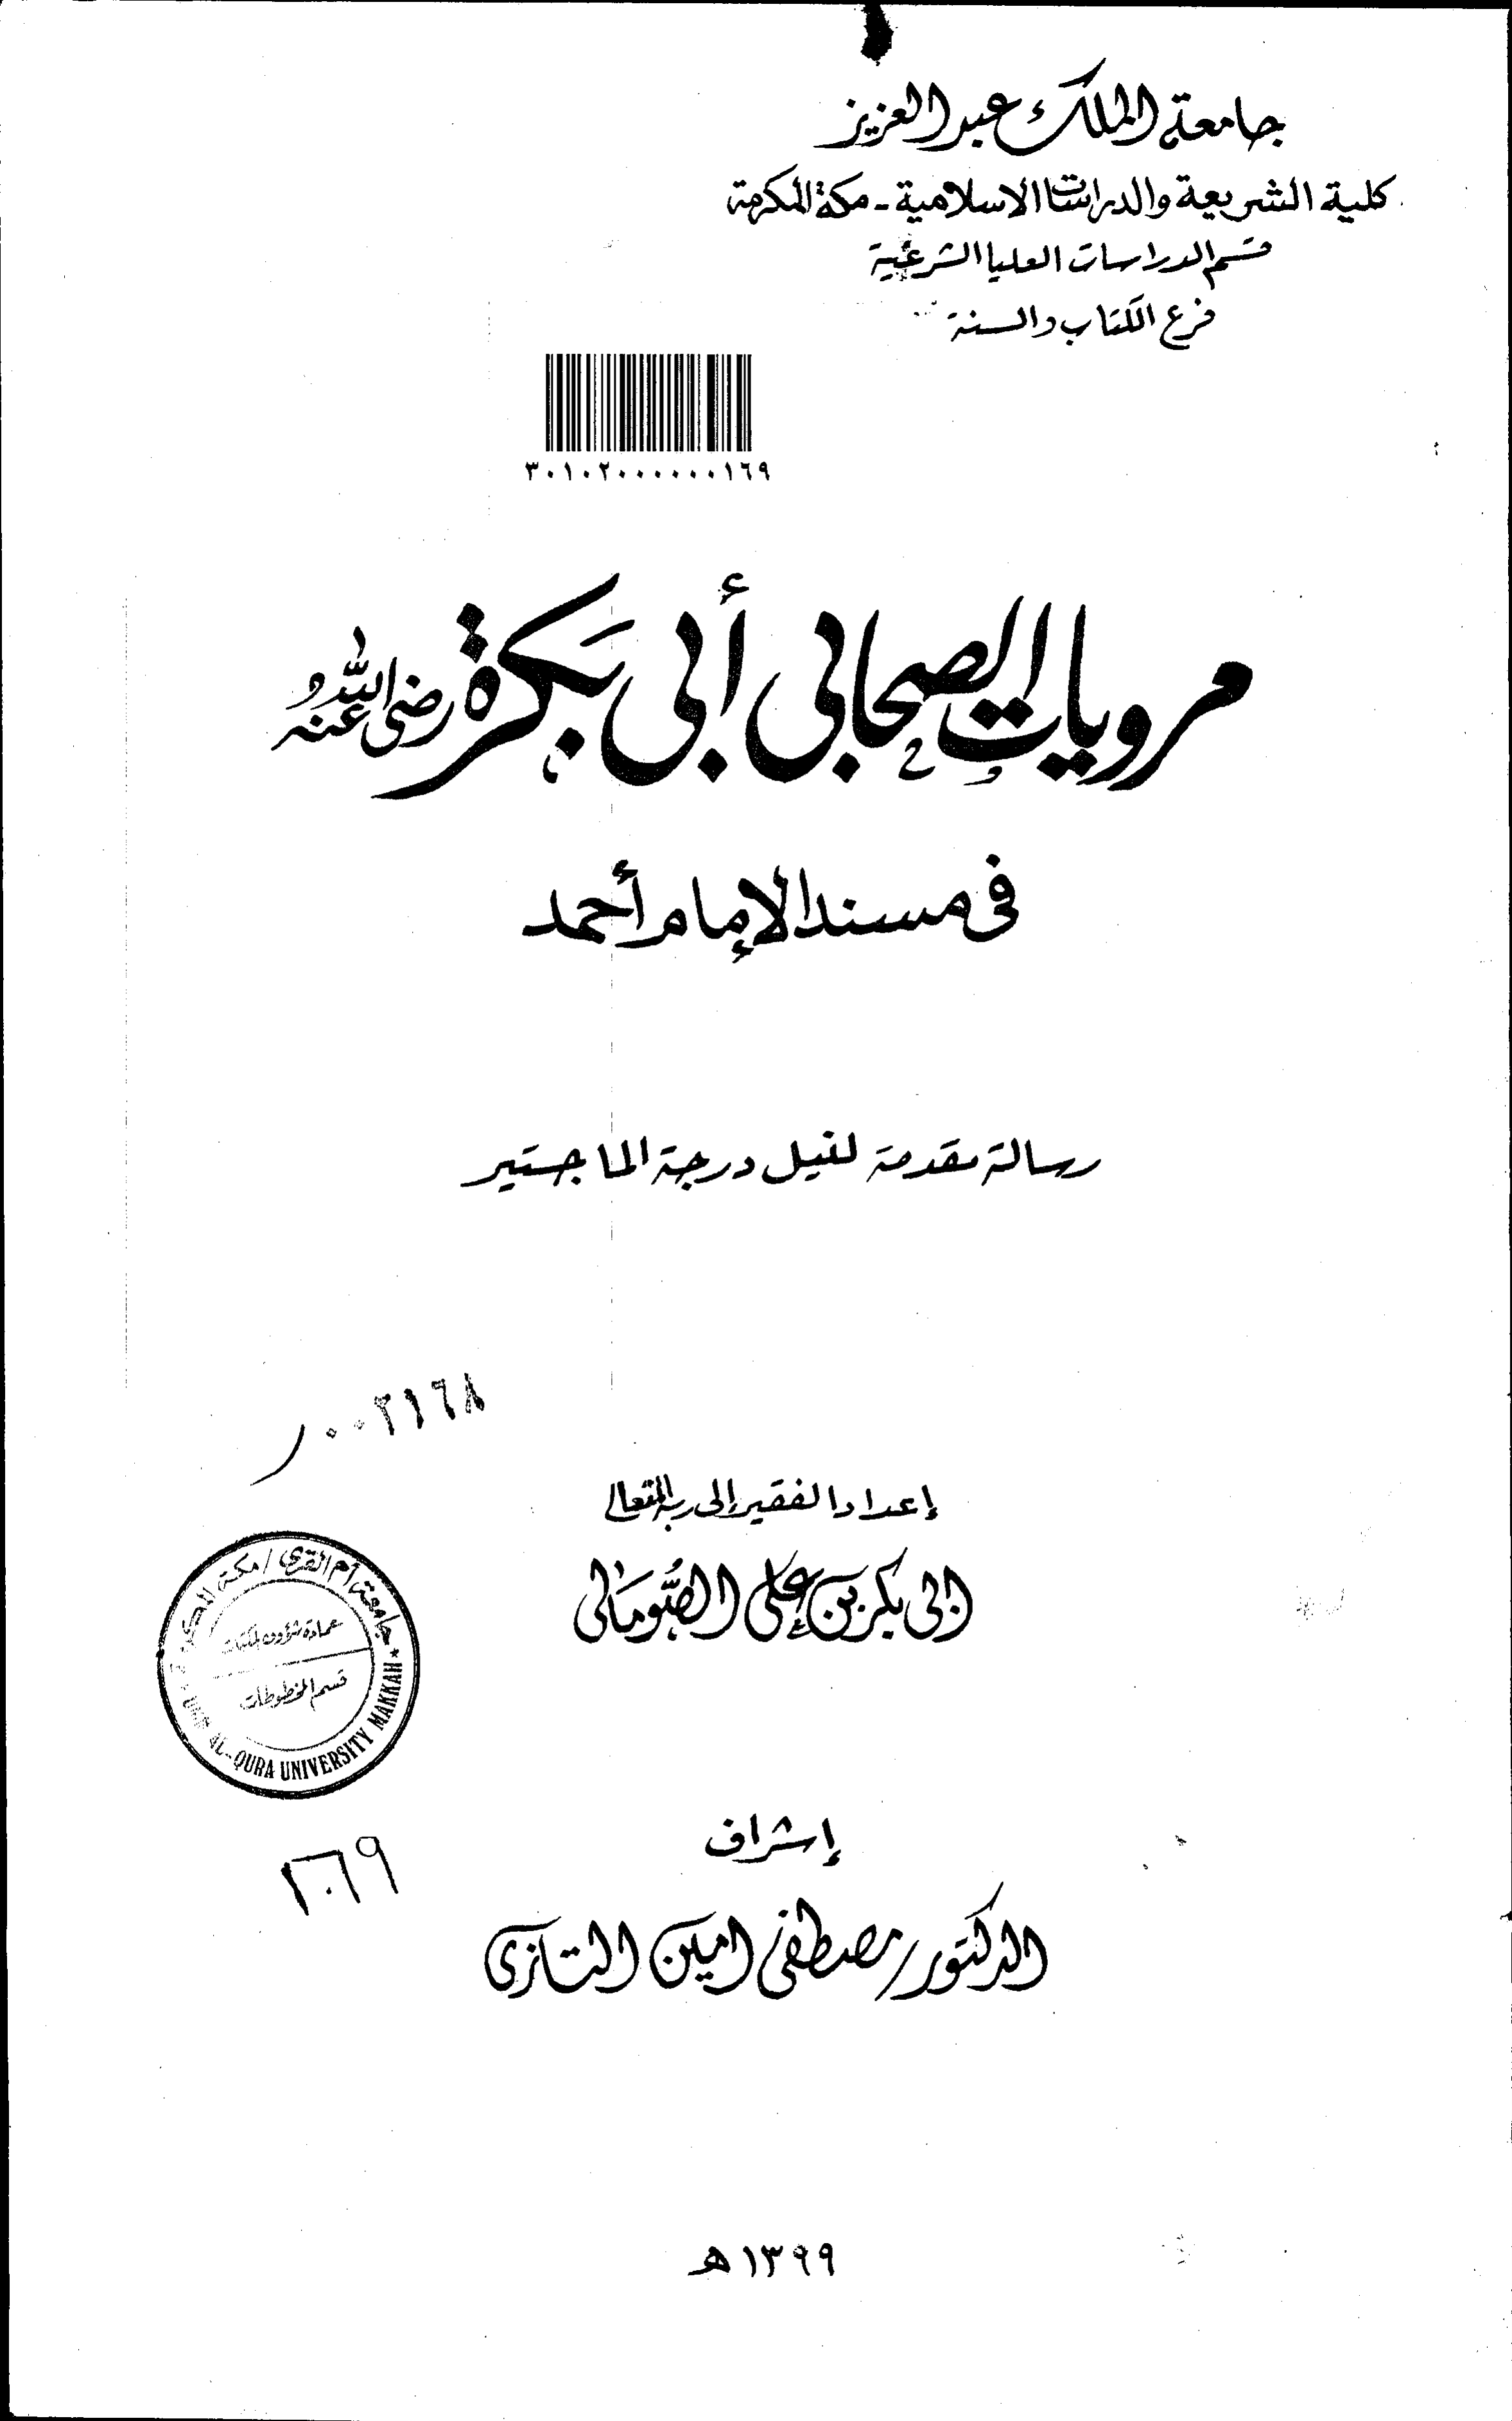 جامعة الملك عبد العزيز
كلية الشريعة والدراسات الاسلامية - مكة المكرمة
قسم الدراسات العليا الشرعية
فرع الكتاب والسنة
٣٠١٠٢٠٠٠٠٠٠١٦٩
مرويات الصحابي أبى بَكرة رضى الله عنه
فى مسند الإمام أحمد
رسالة مقدمة لنيل درجة الماجستير
٠٠٢١٦٨
إعداد الفقير إلى ربه المتعالى
ابى بكر بن على الصُّومَالى
جامعة أم القرى / مكة
عمادة شؤون المكتبات
قسم المخطوطات
AL-QURA UNIVERSITY MAKKAH
إشراف
١٦٩
الدكتور / مصطفى امين التازى
١٣٩٩ هـ